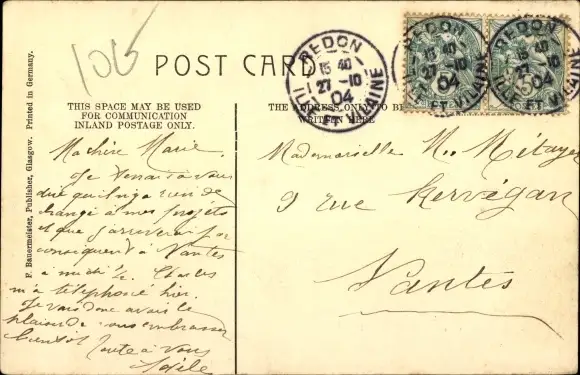 106
POST CARD
REDON
15 40
27 -10
04
ILLE-ET-VILAINE
REDON
15 40
27 -10
04
ILLE-ET-VILAINE
REDON
15 40
27 -10
04
ILLE-ET-VILAINE
THIS SPACE MAY BE USED
FOR COMMUNICATION
INLAND POSTAGE ONLY.
THE ADDRESS ONLY TO BE
WRITTEN HERE
F. Bauermeister, Publisher, Glasgow. Printed in Germany.
Ma chère Marie,
Je tenais à vous
dire qu'il n'y a rien de
changé à mes projets
et que j'arriverai par
conséquent à Nantes
à midi ½. Charles
m'a téléphoné hier.
Je vais donc avoir le
plaisir de vous embrasser
bientôt Toute à vous
Adèle
Mademoiselle M. Métayer
9 rue Kervégan
Nantes